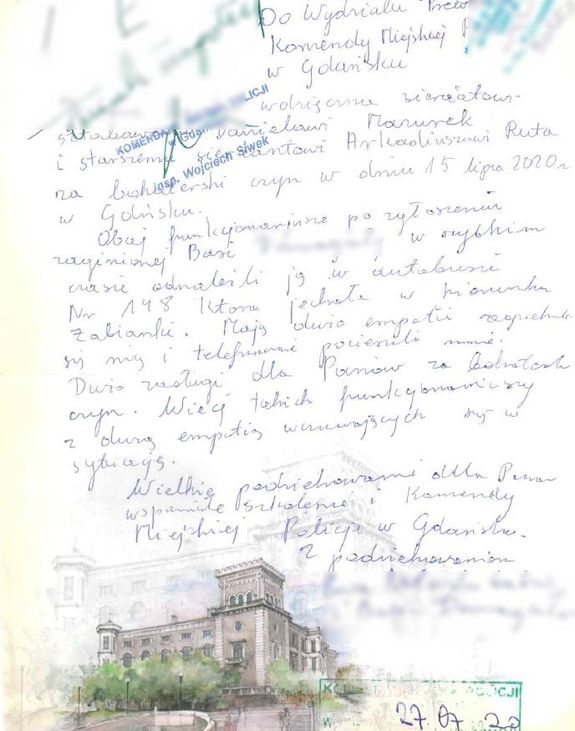 Do Wydziału Prew
Komendy Miejskiej P
w Gdańsku
KOMENDA POLICJI
w Gdań
insp. Wojciech Siwek
wdzięczna sierżantowi
sztabowemu Danielowi Mazurek
i starszemu sierżantowi Arkadiuszowi Ruta
za bohaterski czyn w dniu 15 lipca 2020 r
w Gdańsku.
Obaj funkcjonariusze po zgłoszeniu
zaginionej Basi w szybkim
czasie odnaleźli ją w autobusie
Nr 148 Która jechała w kierunku
Żabianki. Mają dużo empatii zaopiekowali
się nią i telefonicznie pocieszali mnie.
Dużo zasługi dla Panów za bohaterski
czyn. Więcej takich funkcjonariuszy
z dużą empatią wczuwających się w
sytuację.
Wielkie podziękowami dlla Pana
wspaniałe szkolenie i Komendy
Miejskiej Policji w Gdańsku.
Z podziękowaniem
POLICJI
27. 07 20